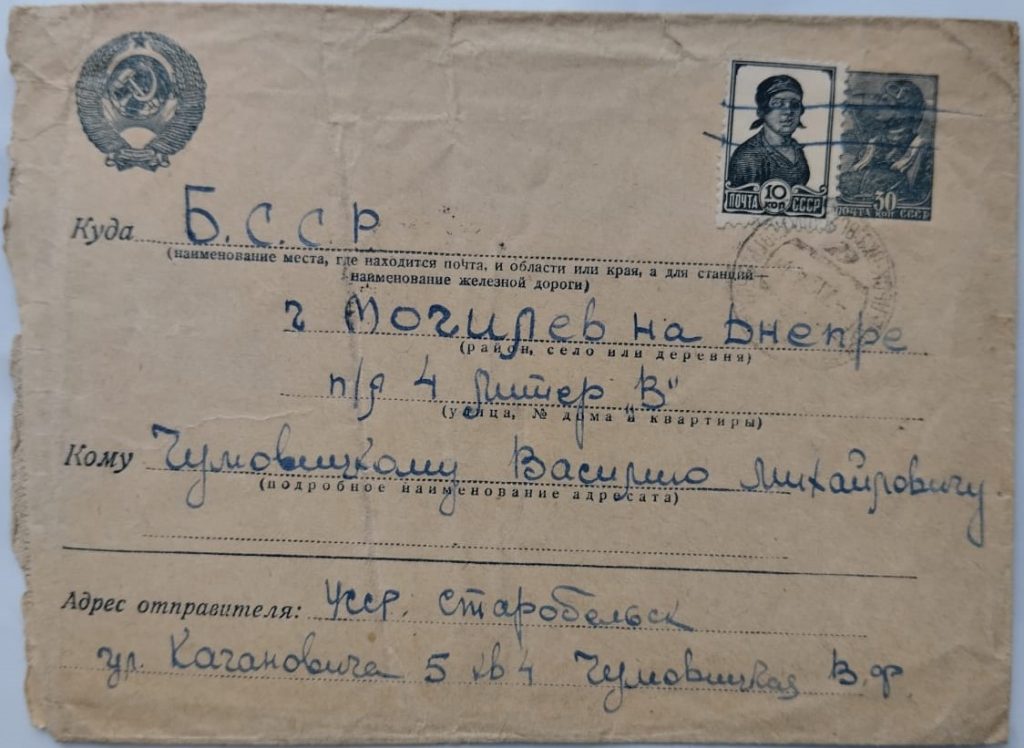 ПОЧТА 10 КОП СССР
30
ПОЧТА КОП СССР
Куда Б.С.С.Р
(наименование места, где находится почта, и области или края, а для станций—
наименование железной дороги)
г Могилев на Днепре
(район, село или деревня)
п/я 4 литер "В"
(улица, № дома и квартиры)
Кому Чумовицкому Василию Михайловичу
(подробное наименование адресата)
Адрес отправителя: Усср. Старобельск
ул. Кагановича 5 кв 4 Чумовицкая В.Ф